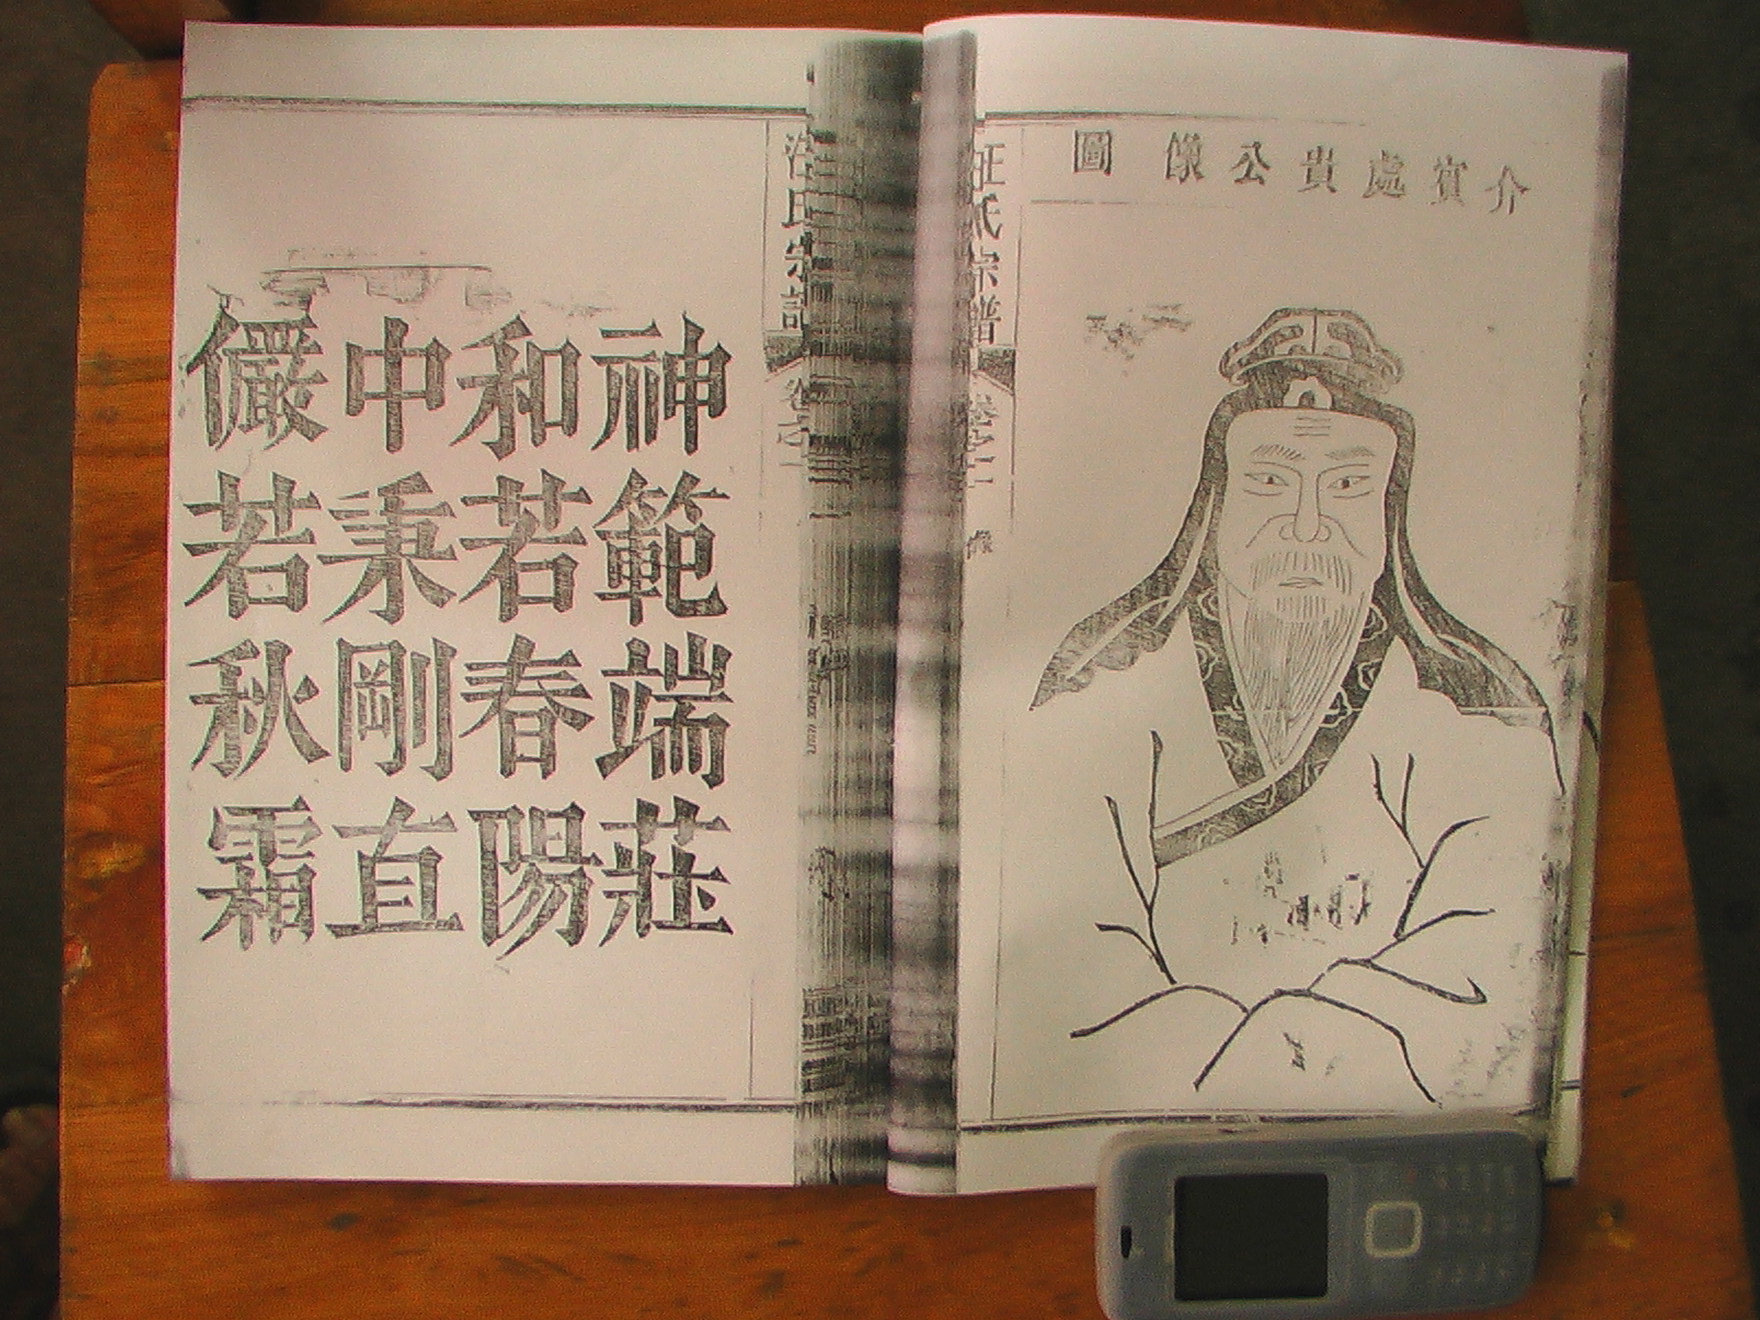 介賓處貴公像圖
汪氏宗譜
卷之二
像
汪氏宗譜
卷之
神範端莊
和若春陽
中秉剛直
儼若秋霜